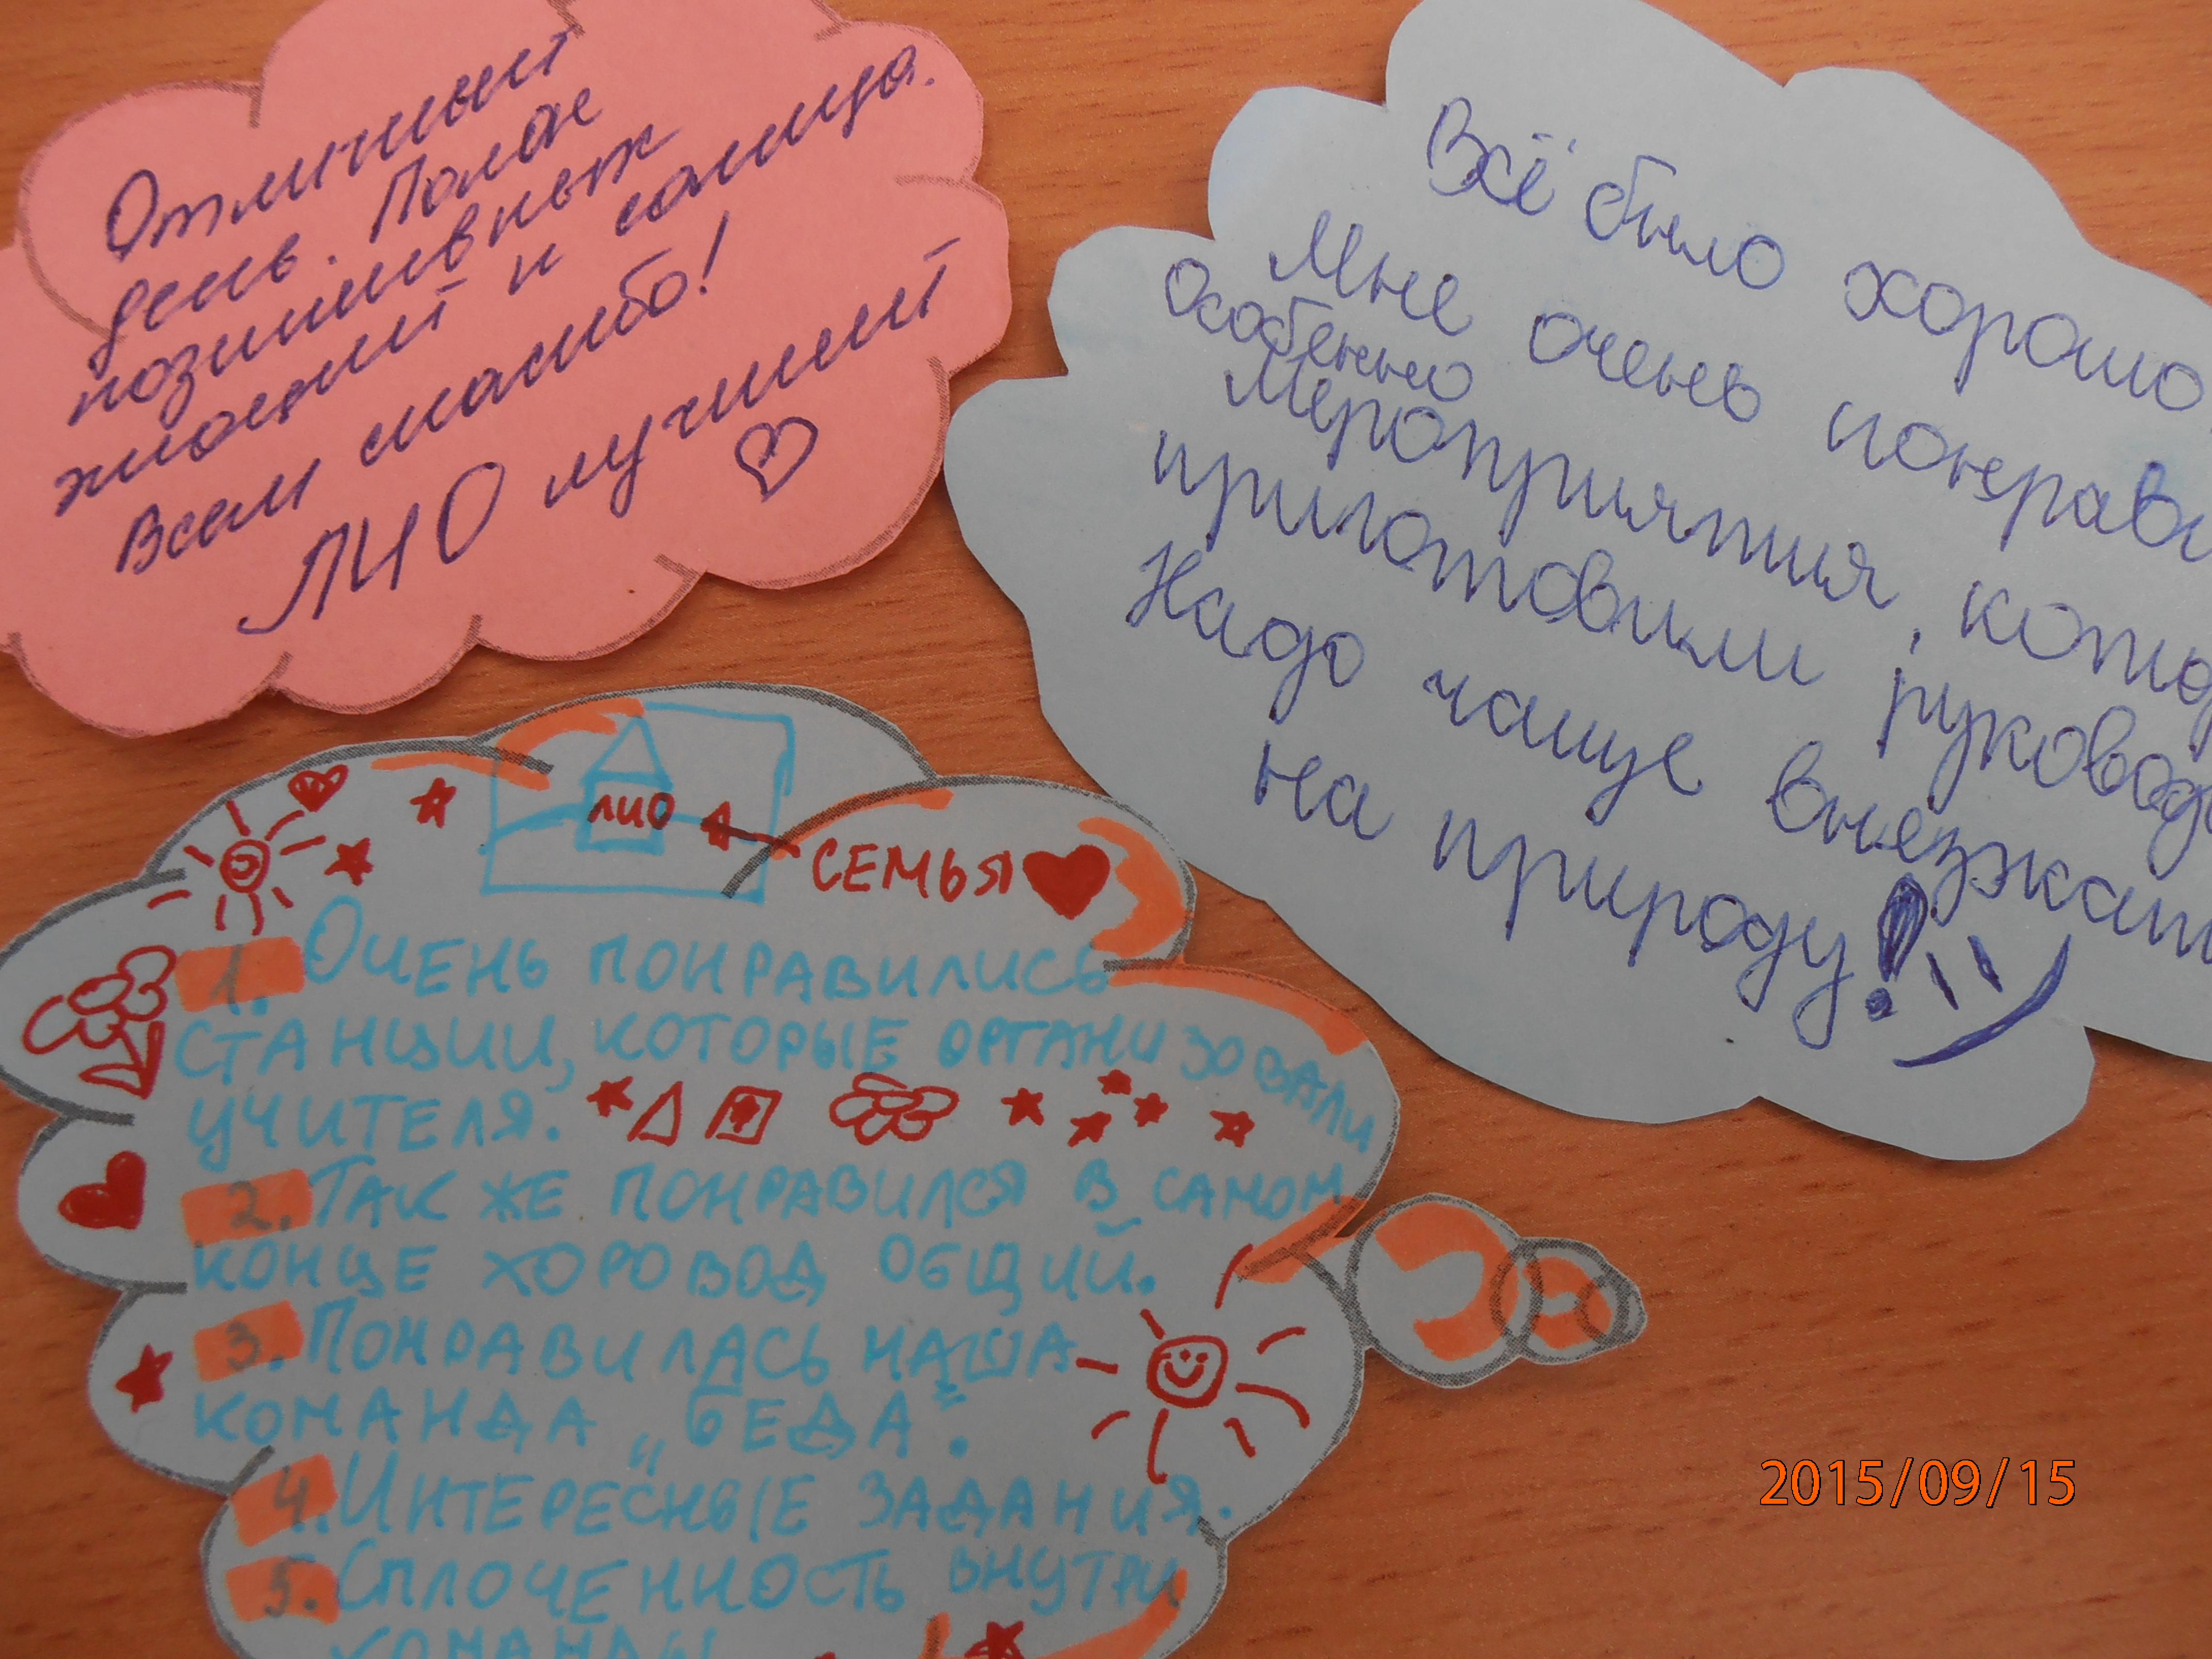 Отличный
день. Полон
позитивных
эмоций и солнца.
Всем спасибо!
ЛИО лучший
Всё было хорошо.
Мне очень понрави
особенно
мероприятия, котор
приготовили руковод
Надо чаще выезжат
на природу!
ЛИО
СЕМЬЯ
1. ОЧЕНЬ ПОНРАВИЛИСЬ
СТАНЦИИ, КОТОРЫЕ ОРГАНИЗОВАЛИ
УЧИТЕЛЯ.
2. ТАК ЖЕ ПОНРАВИЛСЯ В САМОМ
КОНЦЕ ХОРОВОД ОБЩИЙ.
3. ПОНРАВИЛАСЬ НАША
КОМАНДА „БЕДА".
4. ИНТЕРЕСНЫЕ ЗАДАНИЯ.
5. СПЛОЧЕННОСТЬ ВНУТРИ
КОМАНДЫ
2015/09/15